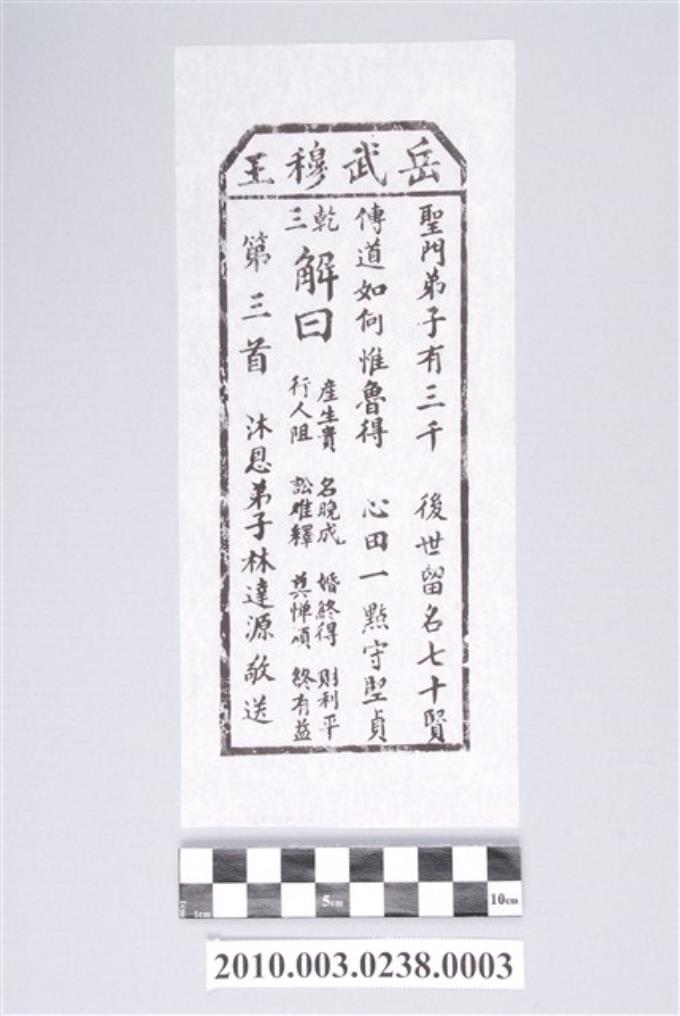 岳武穆王
聖門弟子有三千　後世留名七十賢
傳道如何惟魯得　心田一點守堅貞
乾三
解曰
產生貴　名晚成　婚終得　財利平
行人阻　訟難釋　莫憚煩　終有益
第三首　沐恩弟子林達源敬送
1cm 5cm 10cm
2010.003.0238.0003